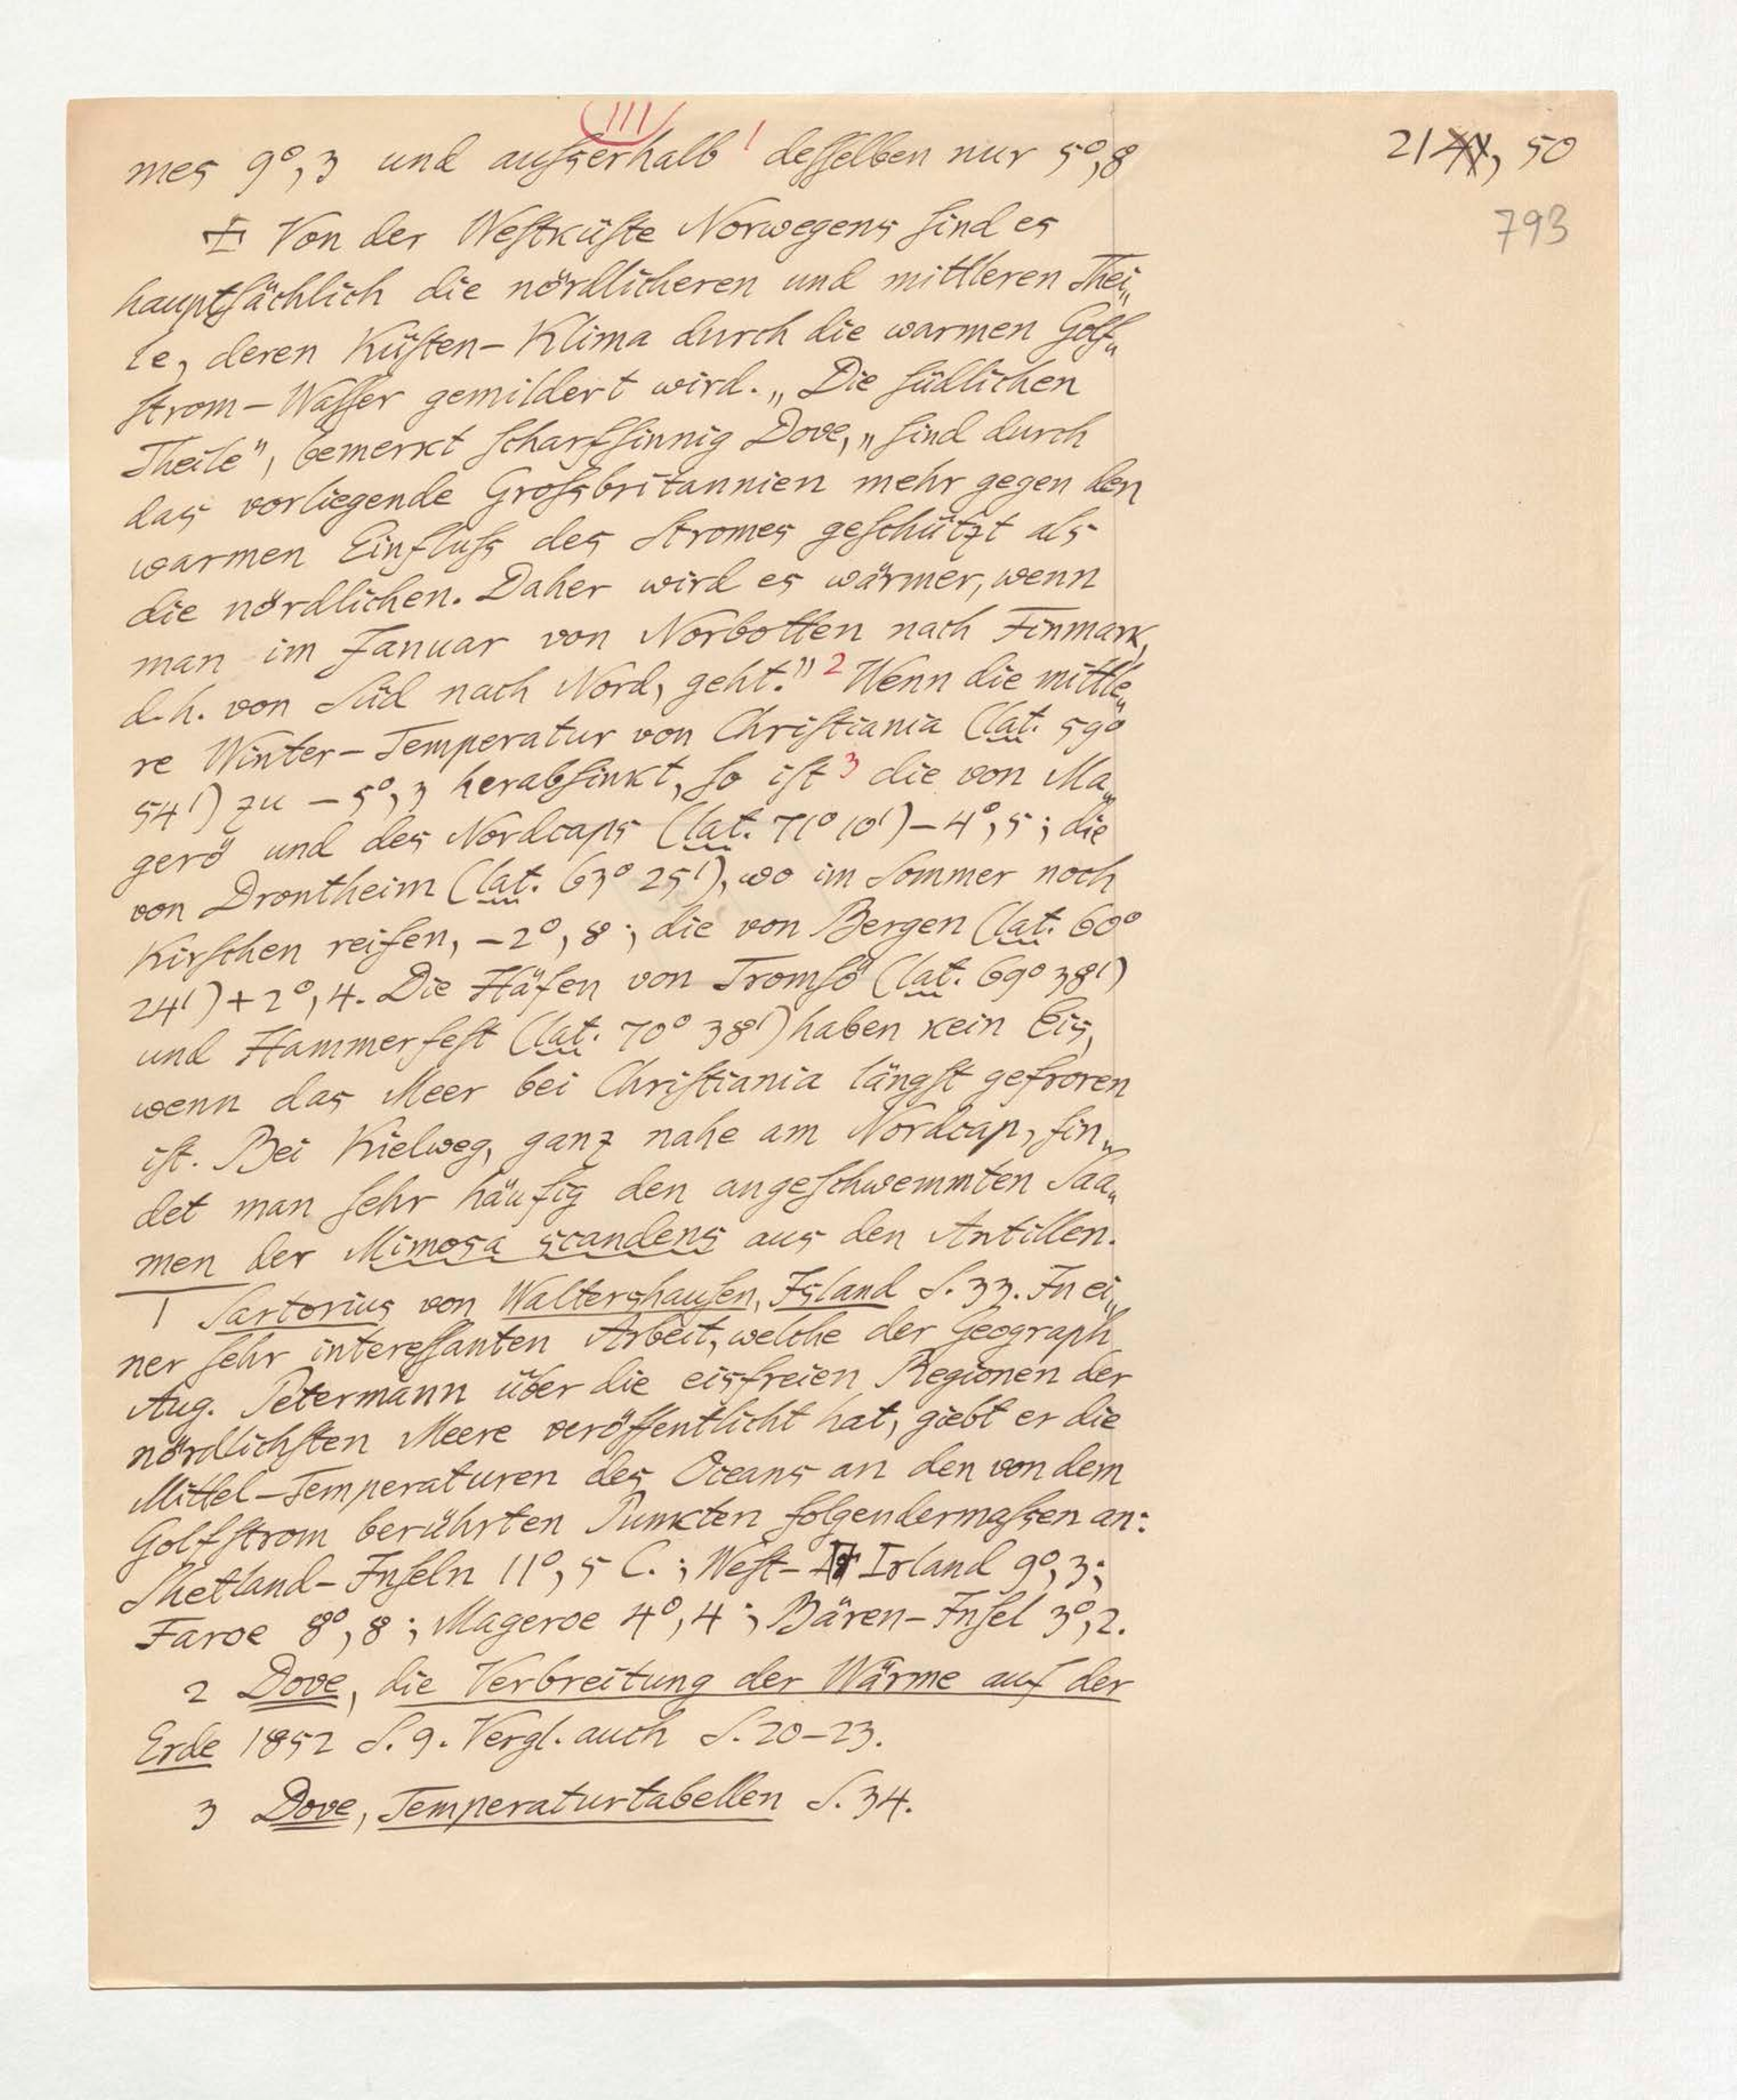 III
mes 9°,3 und aufserhalb 1 desselben nur 5°,8
21, 50
793
Von der Westküste Norwegens sind es
hauptsächlich die nördlicheren und mittleren Thei„
le, deren Küsten-Klima durch die warmen Golf„
strom-Wasser gemildert wird. „Die südlichen
Theile", bemerkt scharfsinnig Dove, „sind durch
das vorliegende Grofsbritannien mehr gegen den
warmen Einflufs des Stromes geschützt als
die nördlichen. Daher wird es wärmer, wenn
man im Januar von Norbotten nach Finmark,
d.h. von Süd nach Nord, geht." 2 Wenn die mittle„
re Winter-Temperatur von Christiania (lat. 59°
54') zu -5°,3 herabsinkt, so ist 3 die von Ma„
gerö und des Nordcaps (lat. 71° 10') -4°,5; die
von Drontheim (lat. 63° 25'), wo im Sommer noch
Kirschen reifen, -2°,8; die von Bergen (lat. 60°
24') +2°,4. Die Häfen von Tromsö (lat. 69° 38')
und Hammerfest (lat. 70° 38') haben kein Eis,
wenn das Meer bei Christiania längst gefroren
ist. Bei Kielweg, ganz nahe am Nordcap, fin„
det man sehr häufig den angeschwemmten Saa„
men der Mimosa scandens aus den Antillen.
1 Sartorius von Waltershausen, Island S. 33. In ei„
ner sehr interessanten Arbeit, welche der Geograph
Aug. Petermann über die eisfreien Regionen der
nördlichsten Meere veröffentlicht hat, giebt er die
Mittel-Temperaturen des Oceans an den von dem
Golfstrom berührten Punkten folgendermafsen an:
Shetland-Inseln 11°,5 C.; West-Irland 9°,3;
Faroe 8°,8; Mageroe 4°,4; Bären-Insel 3°,2.
2 Dove, die Verbreitung der Wärme auf der
Erde 1852 S. 9. Vergl. auch S. 20-23.
3 Dove, Temperaturtabellen S. 34.